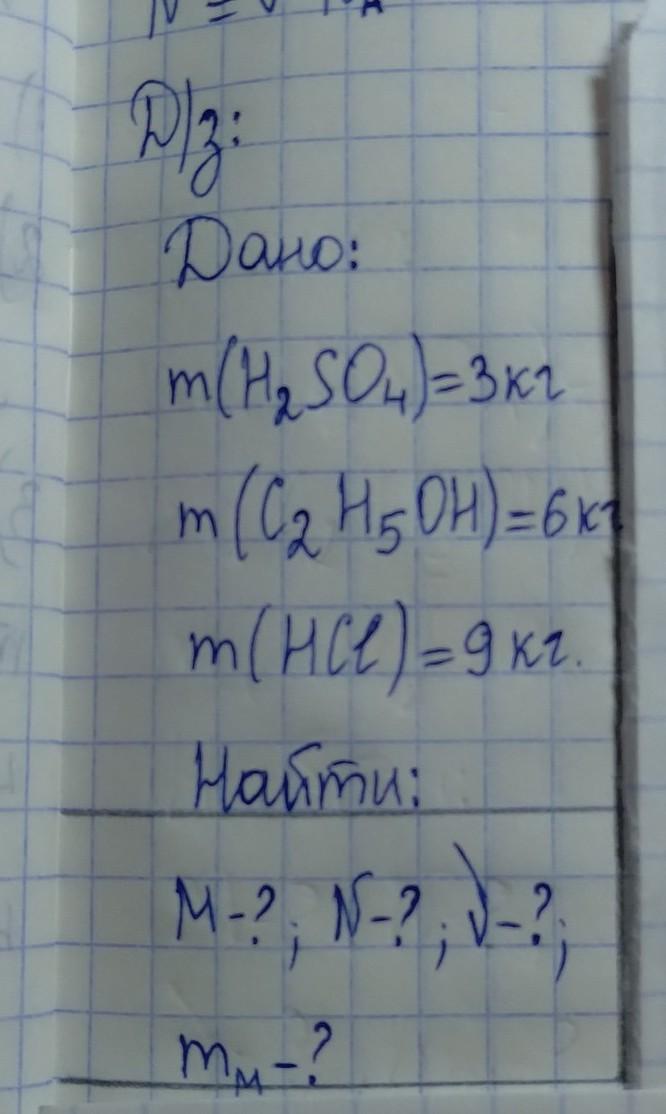 Д/з:
Дано:
m(H₂SO₄)=3кг
m(C₂H₅OH)=6кг
m(HCl)=9кг.
Найти:
M-?; N-?; ν-?;
mₘ-?